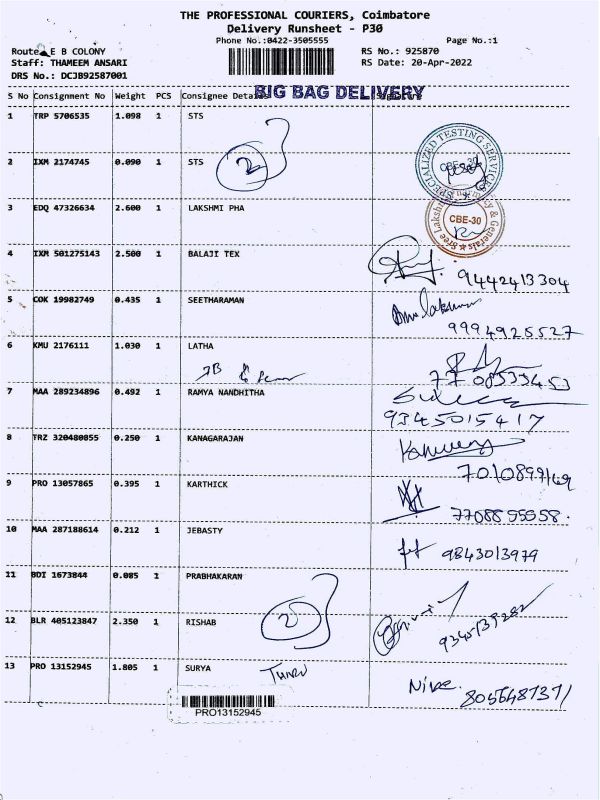 THE PROFESSIONAL COURIERS, Coimbatore
Delivery Runsheet - P30
Phone No.:0422-3505555 Page No.:1
Route E B COLONY RS No.: 925870
Staff: THAMEEM ANSARI RS Date: 20-Apr-2022
DRS No.: DCJB92587001
BIG BAG DELIVERY
S No Consignment No Weight PCS Consignee Details
1 TRP 5706535 1.098 1 STS
SPECIALIZED TESTING SERVICE
CBE-30
2 IXM 2174745 0.090 1 STS
2
3 EDQ 47326634 2.600 1 LAKSHMI PHA
CBE-30
4 IXM 501275143 2.500 1 BALAJI TEX
9442413304
5 COK 19982749 0.435 1 SEETHARAMAN
9994925527
6 KMU 2176111 1.030 1 LATHA
7 MAA 289234896 0.492 1 RAMYA NANDHITHA
9345015417
8 TRZ 320480855 0.250 1 KANAGARAJAN
9 PRO 13057865 0.395 1 KARTHICK
10 MAA 287188614 0.212 1 JEBASTY
9843013979
11 BDI 1673844 0.085 1 PRABHAKARAN
12 BLR 405123847 2.350 1 RISHAB
2
13 PRO 13152945 1.805 1 SURYA
PRO13152945